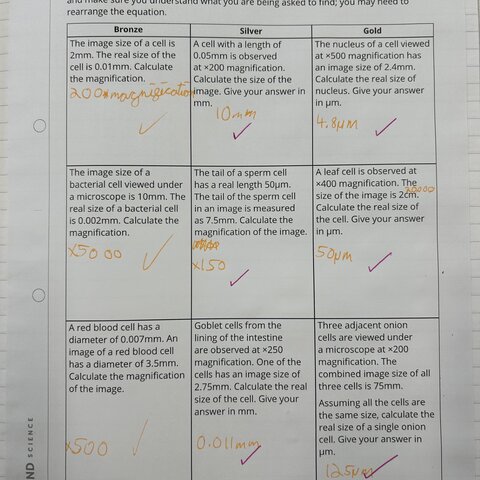 and make sure you understand what you are being asked to find; you may need to
rearrange the equation.
Bronze
Silver
Gold
The image size of a cell is
2mm. The real size of the
cell is 0.01mm. Calculate
the magnification.
200× magnification
A cell with a length of
0.05mm is observed
at ×200 magnification.
Calculate the size of the
image. Give your answer in
mm.
10mm
The nucleus of a cell viewed
at ×500 magnification has
an image size of 2.4mm.
Calculate the real size of
nucleus. Give your answer
in µm.
4.8µm
The image size of a
bacterial cell viewed under
a microscope is 10mm. The
real size of a bacterial cell
is 0.002mm. Calculate the
magnification.
×5000
The tail of a sperm cell
has a real length 50µm.
The tail of the sperm cell
in an image is measured
as 7.5mm. Calculate the
magnification of the image.
×150
A leaf cell is observed at
×400 magnification. The
20000
size of the image is 2cm.
Calculate the real size of
the cell. Give your answer
in µm.
50µm
A red blood cell has a
diameter of 0.007mm. An
image of a red blood cell
has a diameter of 3.5mm.
Calculate the magnification
of the image.
×500
Goblet cells from the
lining of the intestine
are observed at ×250
magnification. One of the
cells has an image size of
2.75mm. Calculate the real
size of the cell. Give your
answer in mm.
0.011mm
Three adjacent onion
cells are viewed under
a microscope at ×200
magnification. The
combined image size of all
three cells is 75mm.
Assuming all the cells are
the same size, calculate the
real size of a single onion
cell. Give your answer in
µm.
125µm
ND SCIENCE